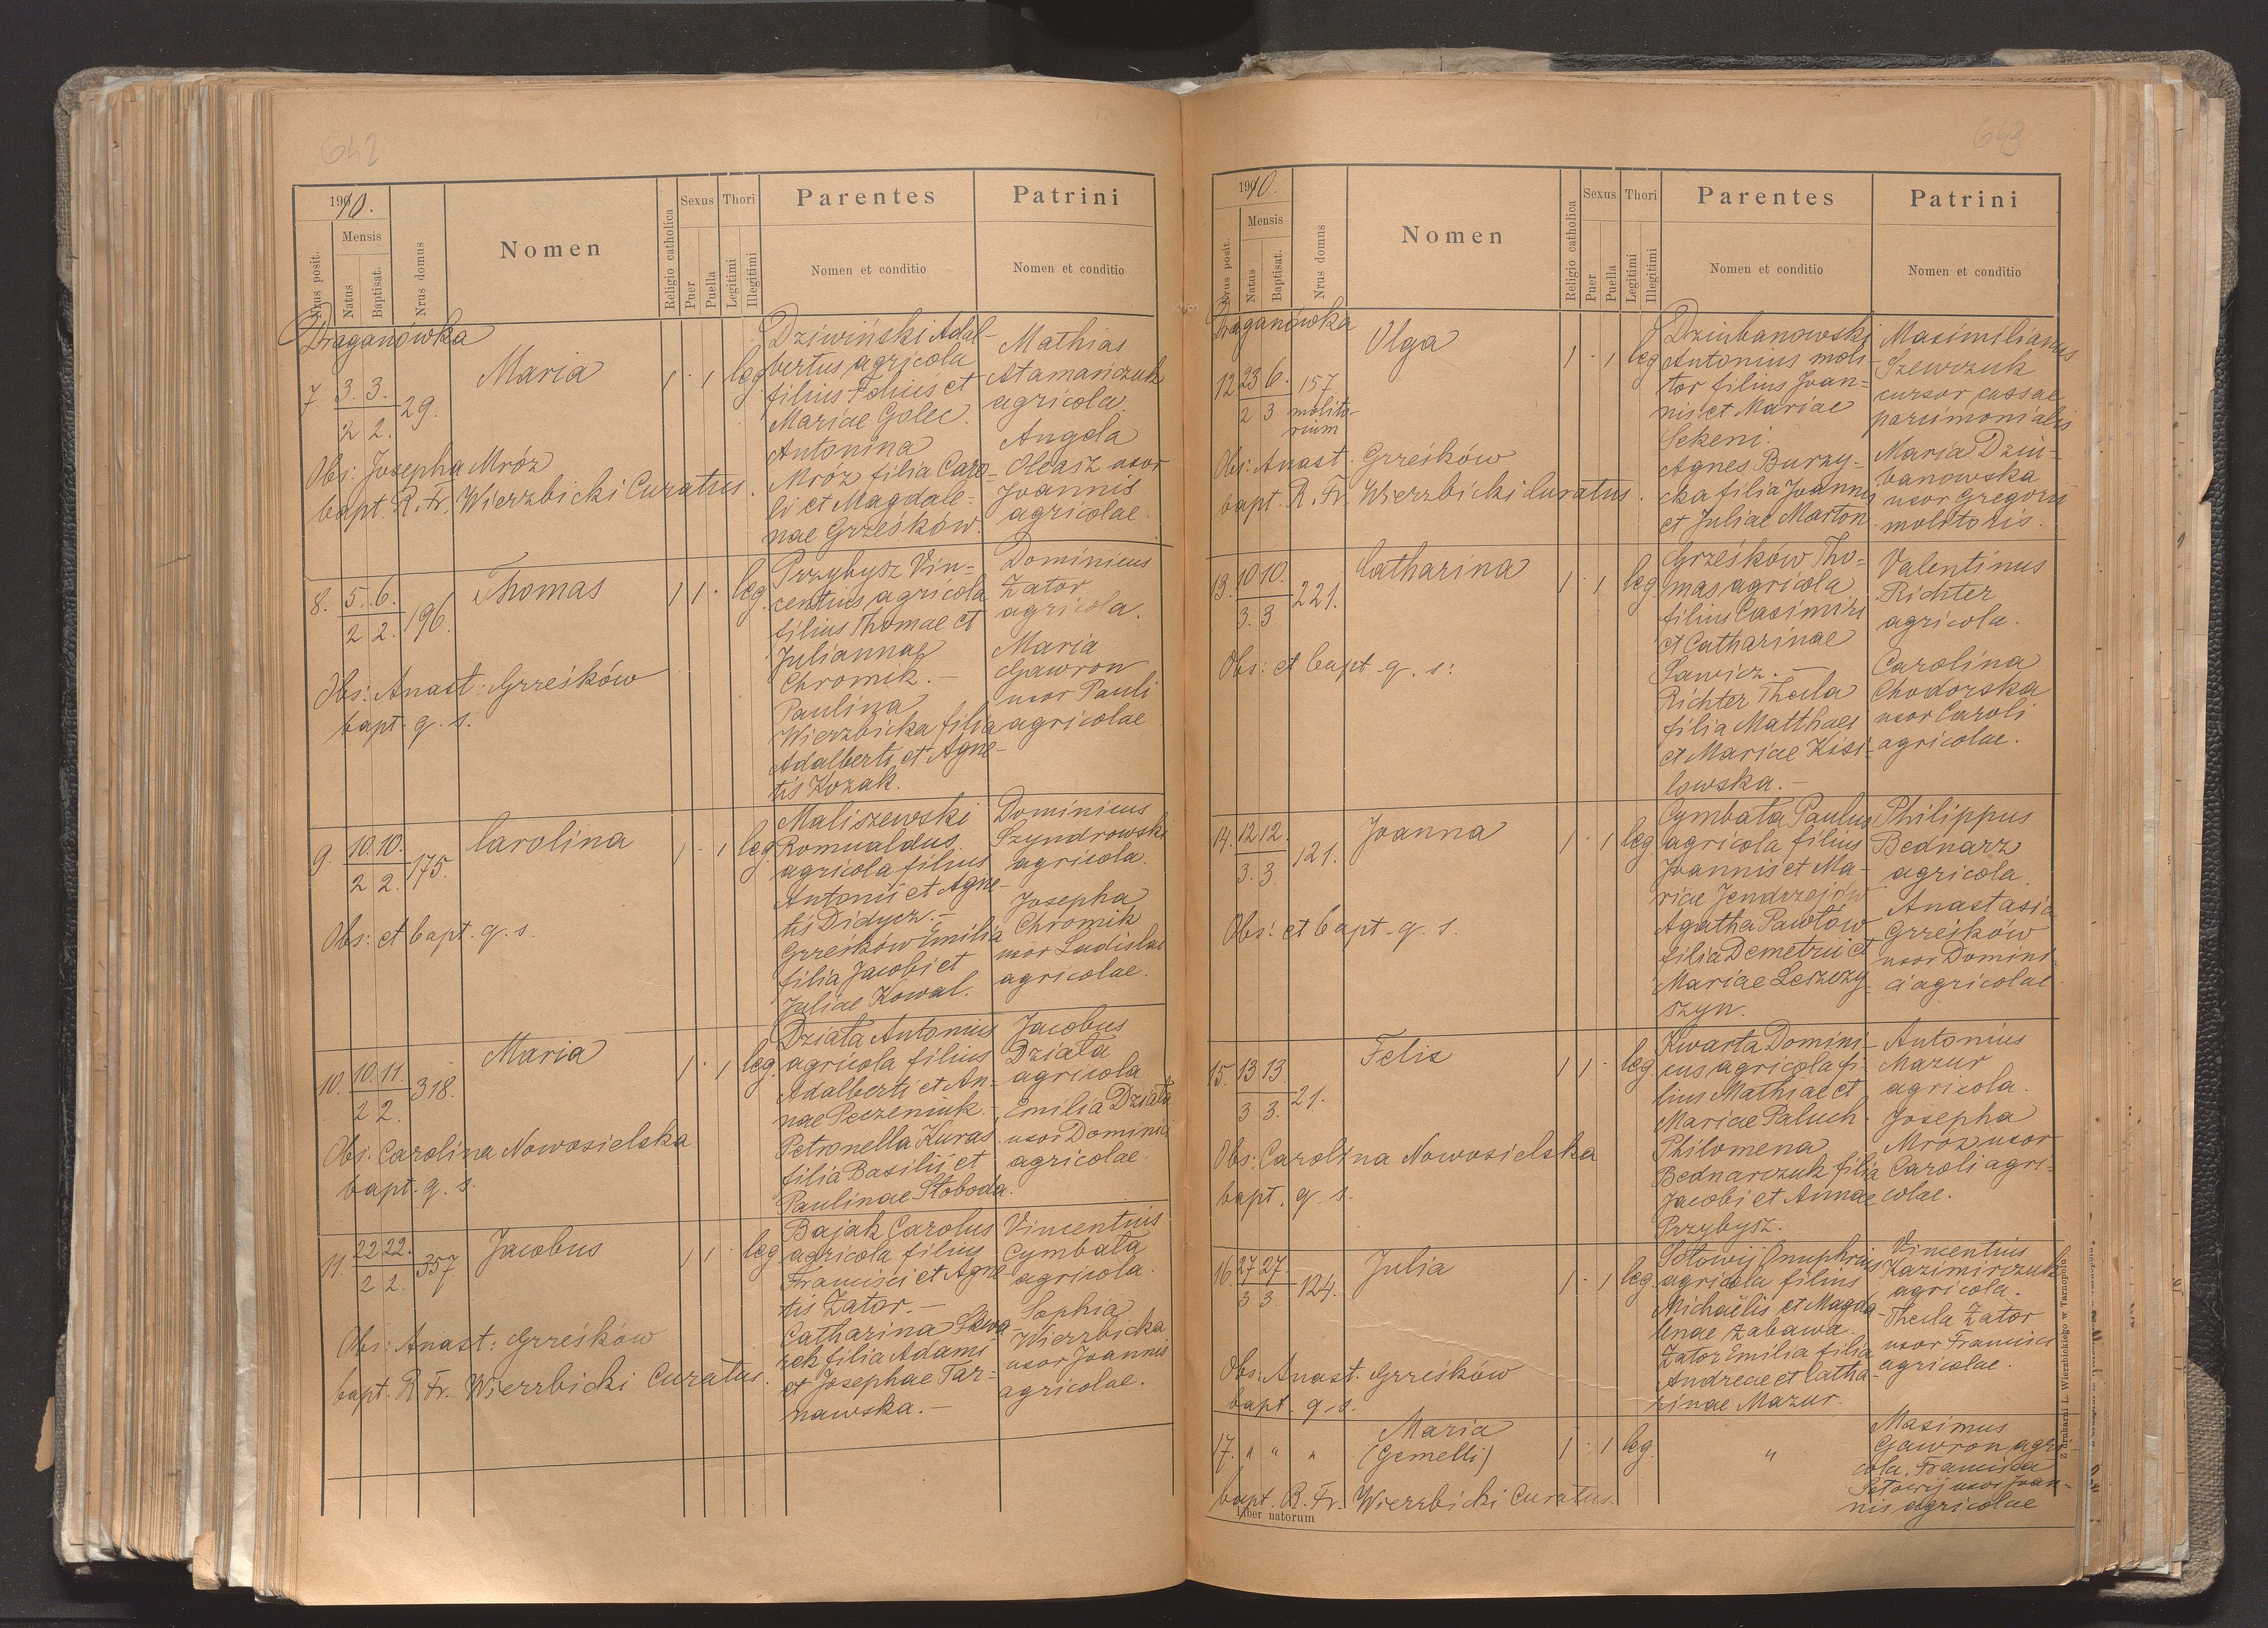 642
1910.
Nrus posit.
Mensis
Natus
Baptisat.
Nrus domus
Nomen
Religio catholica
Sexus
Puer
Puella
Thori
Legitimi
Illegitimi
Parentes
Nomen et conditio
Patrini
Nomen et conditio
Draganówka
7. 3. 3. 29. Maria 1 · 1 leg
2 2.
Dziwiński Adal-
bertus agricola
filius et
Mariae Golec.
Antonina
Mróz filia Caro-
li et Magdale-
nae Grześków.
Mathias
Atamańczuk
agricola.
Angela
Oleasz uxor
Joannis
agricolae.
Obs: Josepha Mróz
bapt. R. Fr. Wierzbicki Curatus.
8. 5. 6. 196. Thomas 1 1 · leg.
2 2.
Przybysz Vin-
centius agricola
filius Thomae et
Juliannae
Chromik. —
Paulina
Wierzbicka filia
Adalberti et Agne-
tis Kozak.
Dominicus
Zator
agricola.
Maria
Gawron
uxor Pauli
agricolae
Obs: Anast: Grześków
bapt. q. s.
9. 10. 10. 175. Carolina 1 · 1 leg
2 2.
Maliszewski
Romualdus
agricola filius
Antonii et Agne-
tis Didycz. —
Grześków Emilia
filia Jacobi et
Juliae Kowal.
Dominicus
Szyndrowski
agricola.
Josepha
Chromik
uxor Ladislai
agricolae.
Obs: et bapt. q. s.
10. 10. 11. 318. Maria 1 · 1 leg.
2 2.
Działa Antonius
agricola filius
Adalberti et An-
nae Peczeniuk. —
Petronella Kuraś
filia Basilii et
Paulinae Słoboda.
Jacobus
Działa
agricola
Emilia Działa
uxor Dominici
agricolae.
Obs. Carolina Nowosielska
bapt. q. s.
11. 22 22. 357. Jacobus 1 1 · leg
2 2.
Bajak Carolus
agricola filius
Francisci et Agne-
tis Zator. —
Catharina Skwa-
rek filia Adami
et Josephae Tar-
nawska. —
Vincentius
Cymbała
agricola.
Sophia
Wierzbicka
uxor Joannis
agricolae.
Obs: Anast: Grześków
bapt. R. Fr. Wierzbicki Curatus.
643
1910.
Nrus posit.
Mensis
Natus
Baptisat.
Nrus domus
Nomen
Religio catholica
Sexus
Puer
Puella
Thori
Legitimi
Illegitimi
Parentes
Nomen et conditio
Patrini
Nomen et conditio
Draganówka
12 23 6. 157 Olga 1 · 1 leg
2 3 molito-
rium
Dziubanowski
Antonius moli-
tor filius Joan-
nis et Mariae
Sekeni.
Agnes Burzy-
cka filia Joannis
et Juliae Marton.
Maximilianus
Szewczuk
cursor cassae
parsimonialis
Maria Dziu-
banowska
uxor Gregorii
molitoris.
Obs: Anast. Grześków
bapt. R. Fr. Wierzbicki Curatus.
13. 10 10. 221. Catharina 1 · 1 leg
3. 3
Grześków Tho-
mas agricola
filius Casimiri
et Catharinae
Sawicz. —
Richter Thecla
filia Matthaei
et Mariae Kisi-
lowska. —
Valentinus
Richter
agricola.
Carolina
Chodorska
uxor Caroli
agricolae.
Obs: et bapt. q. s:
14. 12 12. 121. Joanna 1 · 1 leg
3. 3.
Cymbała Paulus
agricola filius
Joannis et Ma-
riae Jendrzejów
Agatha Pawłów
filia Demetrii et
Mariae Leszczy-
szyn.
Philippus
Bednarz
agricola.
Anastasia
Grześków
uxor Domini-
ci agricolae
Obs: et bapt. q. s.
15. 13 13. 21. Felix 1 1 · leg
3 3.
Kwarta Domini-
cus agricola fi-
lius Mathiae et
Mariae Paluch.
Philomena
Bednarczuk filia
Jacobi et Annae
Przybysz.
Antonius
Mazur
agricola.
Josepha
Mróz uxor
Caroli agri-
colae.
Obs: Carolina Nowosielska
bapt. q. s.
16. 27 27. 124. Julia 1 · 1 leg
3 3.
Sołowij Onuphrius
agricola filius
Michaëlis et Magda-
lenae Zabawa.
Zator Emilia filia
Andreae et Catha-
rinae Mazur.
Vincentius
Kazimirczuk
agricola.
Thecla Zator
uxor Francisci
agricolae.
Obs: Anast. Grześków
bapt. q. s.
17. " " " Maria 1 · 1 leg. "
(Gemelli)
Maximus
Gawron agri-
cola, Francisca
Sołowij uxor Joan-
nis agricolae
bapt. R. Fr. Wierzbicki Curatus.
Liber natorum
Z drukarni L. Wierzbickiego w Tarnopolu